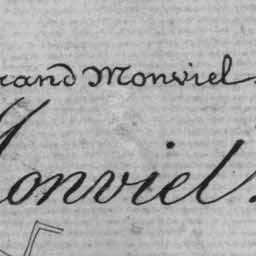 rand Monviel.
Monviel.